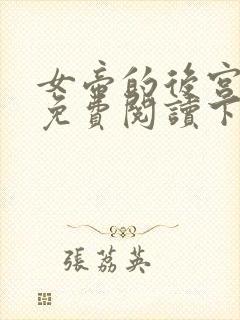 女帝的後宮
免費閱讀下
張荔英